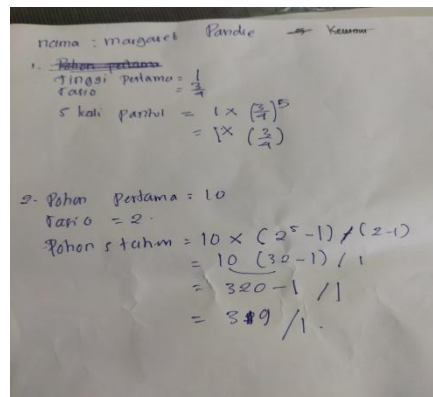 nama : margaret Pandie
1. Pohon pertama
Tinggi pertama = 1
rasio = 3/4
5 kali pantul = 1 × (3/4)^5
= 1 × (3/4)
2. Pohon pertama = 10
rasio = 2.
Pohon 5 tahun = 10 × (2^5 - 1) / (2-1)
= 10 (32 - 1) / 1
= 320 - 1 / 1
= 319 / 1.